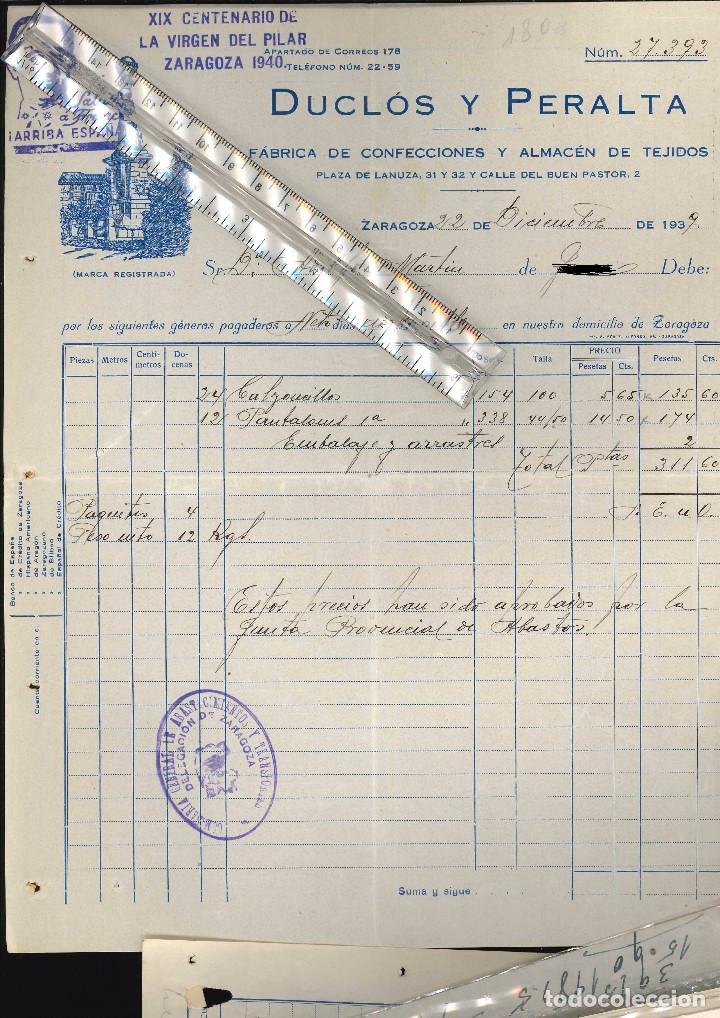 XIX CENTENARIO DE
LA VIRGEN DEL PILAR
ZARAGOZA 1940
¡ARRIBA ESPAÑA
APARTADO DE CORREOS 178
TELÉFONO NÚM. 22-59
Núm. 27.393
DUCLÓS Y PERALTA
FÁBRICA DE CONFECCIONES Y ALMACÉN DE TEJIDOS
PLAZA DE LANUZA, 31 Y 32 Y CALLE DEL BUEN PASTOR, 2
ZARAGOZA 22 DE Diciembre DE 1937.
(MARCA REGISTRADA)
Sr. D. Martin de Debe:
por los siguientes géneros pagaderos a en nuestro domicilio de Zaragoza
Piezas Metros Centímetros Docenas Talla PRECIO Pesetas Cts. Pesetas Cts.
24 Calzoncillos 154 100 5 65 135 60
12 Pantalones 1ª " 338 44/50 14 50 174
Embalaje y arrastres 2
Total Ptas 311 60
Paquetes 4 S. E. u O.
Peso neto 12 Kgs.
Estos precios han sido aprobados por la
Junta Provincial de Abastos.
Banco de España
» de Crédito de Zaragoza
» Hispano Americano
» de Aragón
» Zaragozano
» de Bilbao
» Español de Crédito
Cuenta corriente en el
COMISARIA GENERAL DE ABASTECIMIENTOS Y TRANSPORTES
DELEGACIÓN DE ZARAGOZA
Suma y sigue
todocoleccion